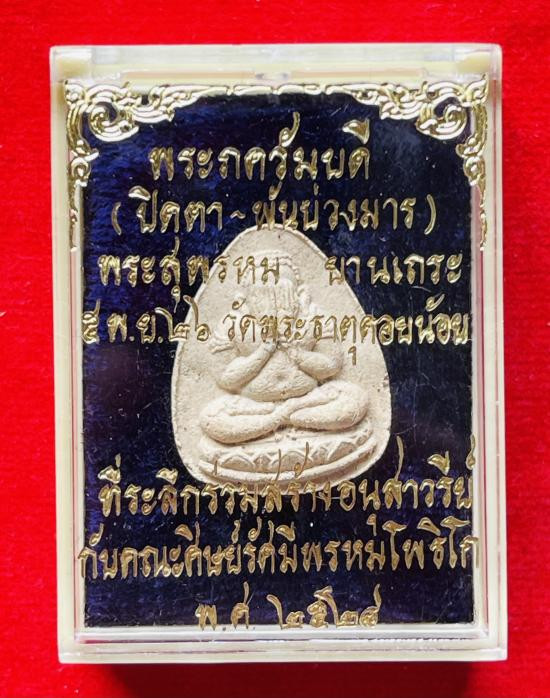 พระภควัมบดี
(ปิดตา~พันบ่วงมาร)
พระสุพรหม ยานเถระ
๕ พ.ย.๒๖ วัดพระธาตุดอยน้อย
ที่ระลึกร่วมสร้างอนุสาวรีย์
กับคณะศิษย์รัศมีพรหมโพธิโก
พ.ศ. ๒๕๒๘